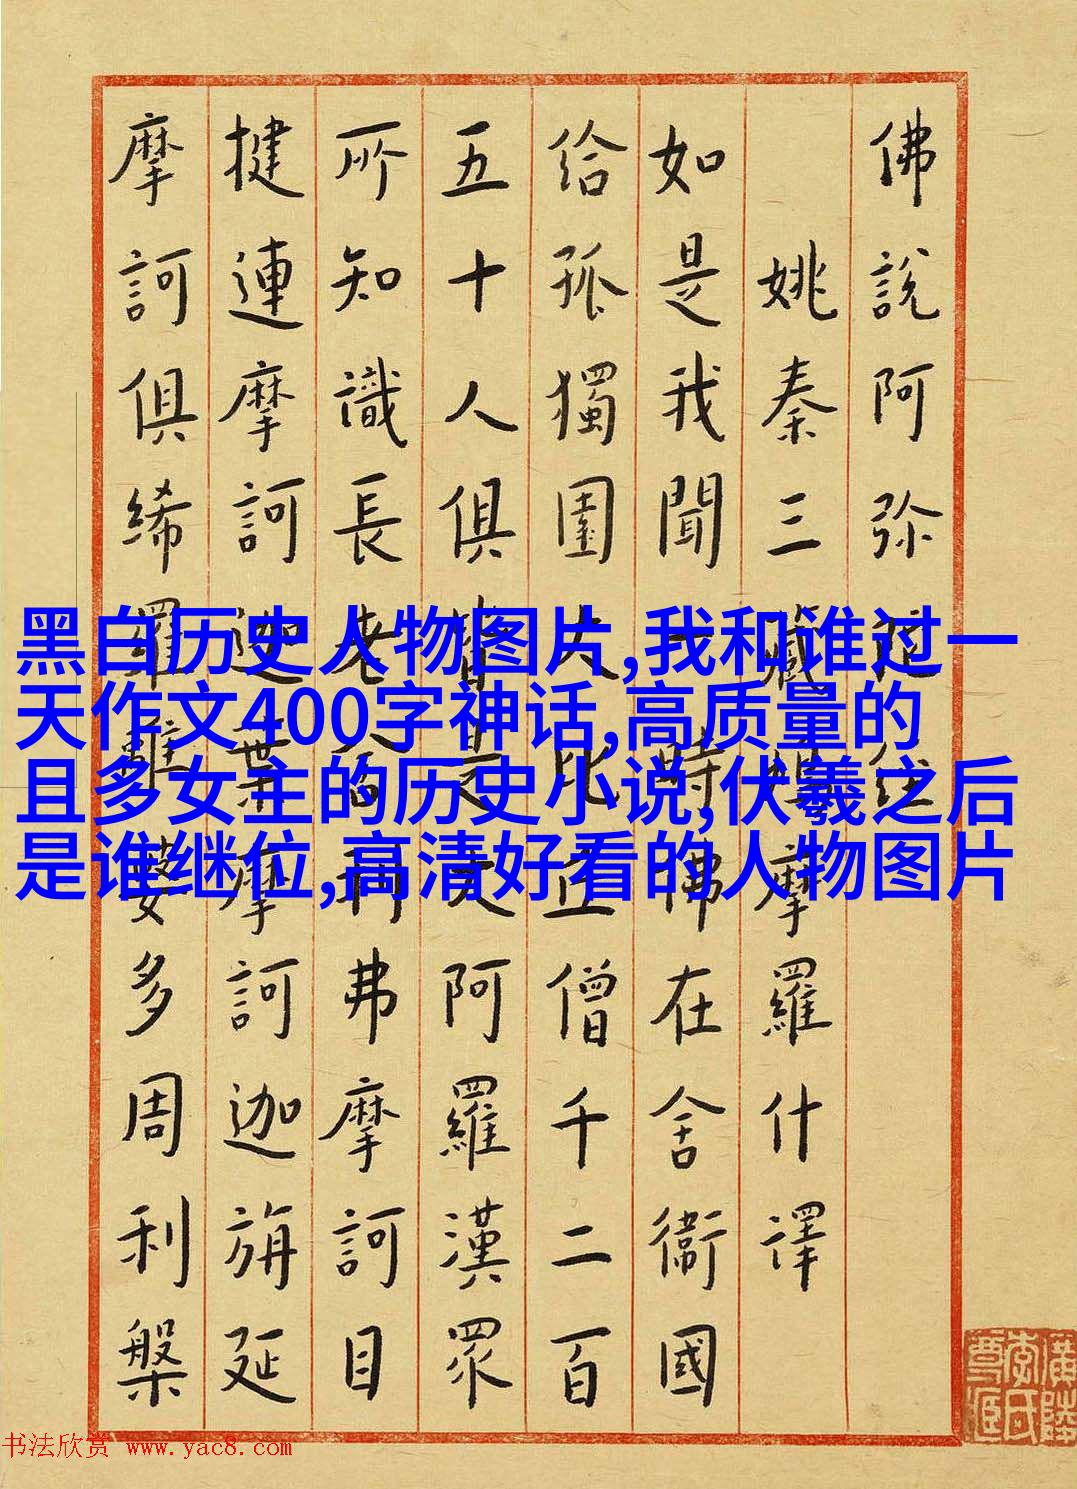 佛說阿弥陀經
姚秦三藏鳩摩羅什譯
如是我聞一時佛在舍衞國
给孤獨園大比丘僧千二百
五十人俱皆是大阿羅漢眾
所知識長老舍利弗摩訶目
揵連摩訶迦葉摩訶迦旃延
摩訶俱絺羅離婆多周利槃
黑白历史人物图片,我和谁过一
天作文400字神话,高质量的
且多女主的历史小说,伏羲之后
是谁继位,高清好看的人物图片
书法欣赏 www.yac8.com